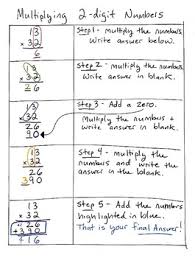 Multiplying 2-digit Numbers
13
x 32
6
Step 1 - multiply the numbers.
Write answer below.
13
x 32
26
Step 2 - multiply the
numbers. Write answer in blank.
13
x 32
26
0
Step 3 - Add a zero.
Multiply the numbers +
write answer in blank.
13
x 32
26
390
Step 4 - multiply the
numbers and write the
answer in the blank.
13
x 32
26
+ 390
416
Step 5 - Add the numbers
highlighted in blue.
That is your final Answer!